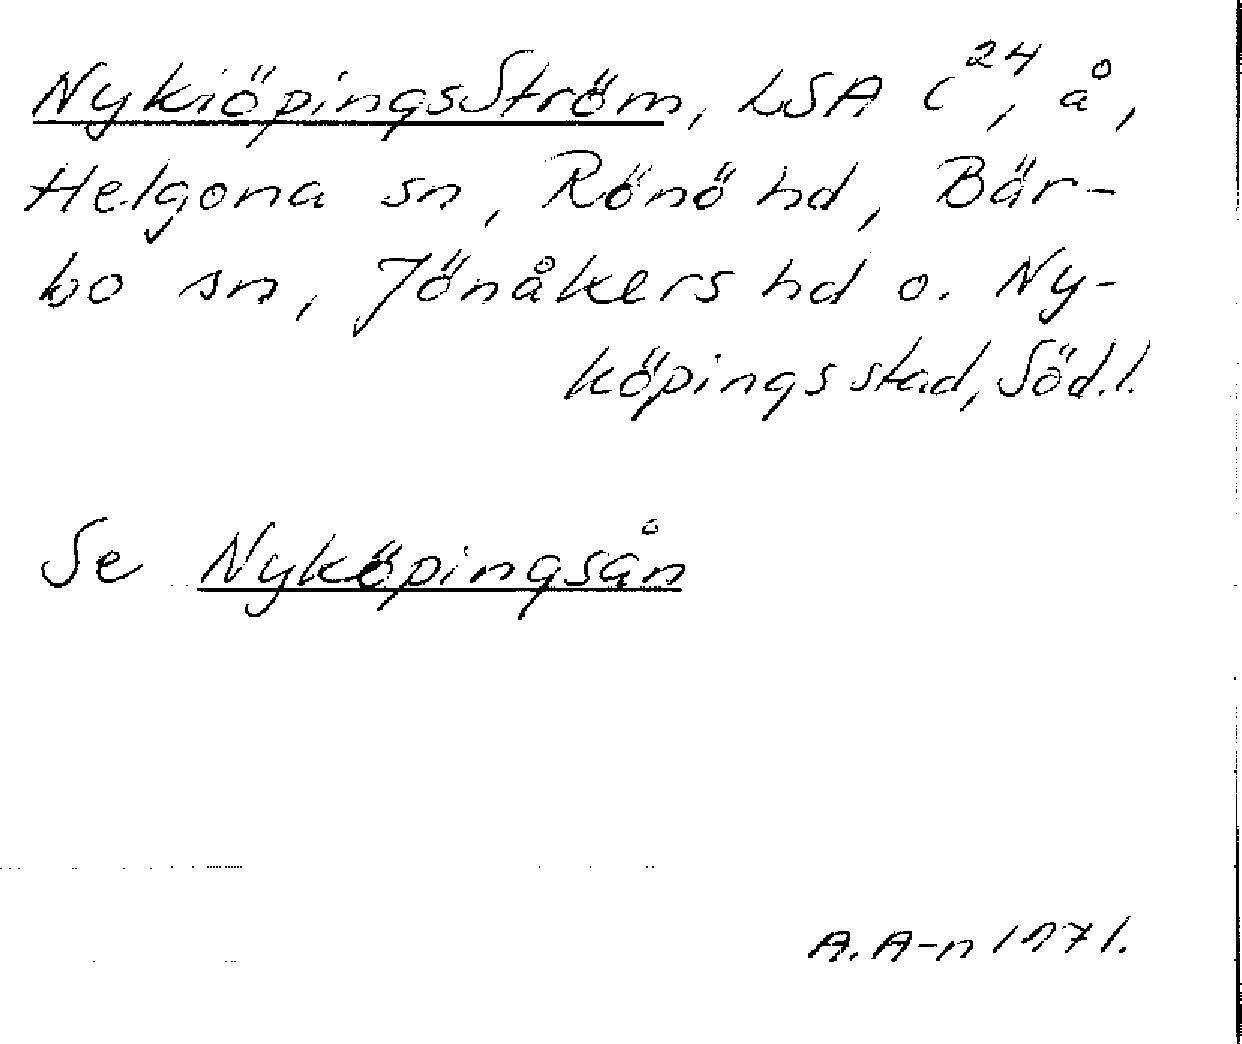 NykiöpingsStröm, LSA C²⁴, å,
Helgona sn, Rönö hd, Bär-
bo sn, Jönåkers hd o. Ny-
köpings stad, Söd.l.
Se Nyköpingsån
A.A-n 1971.